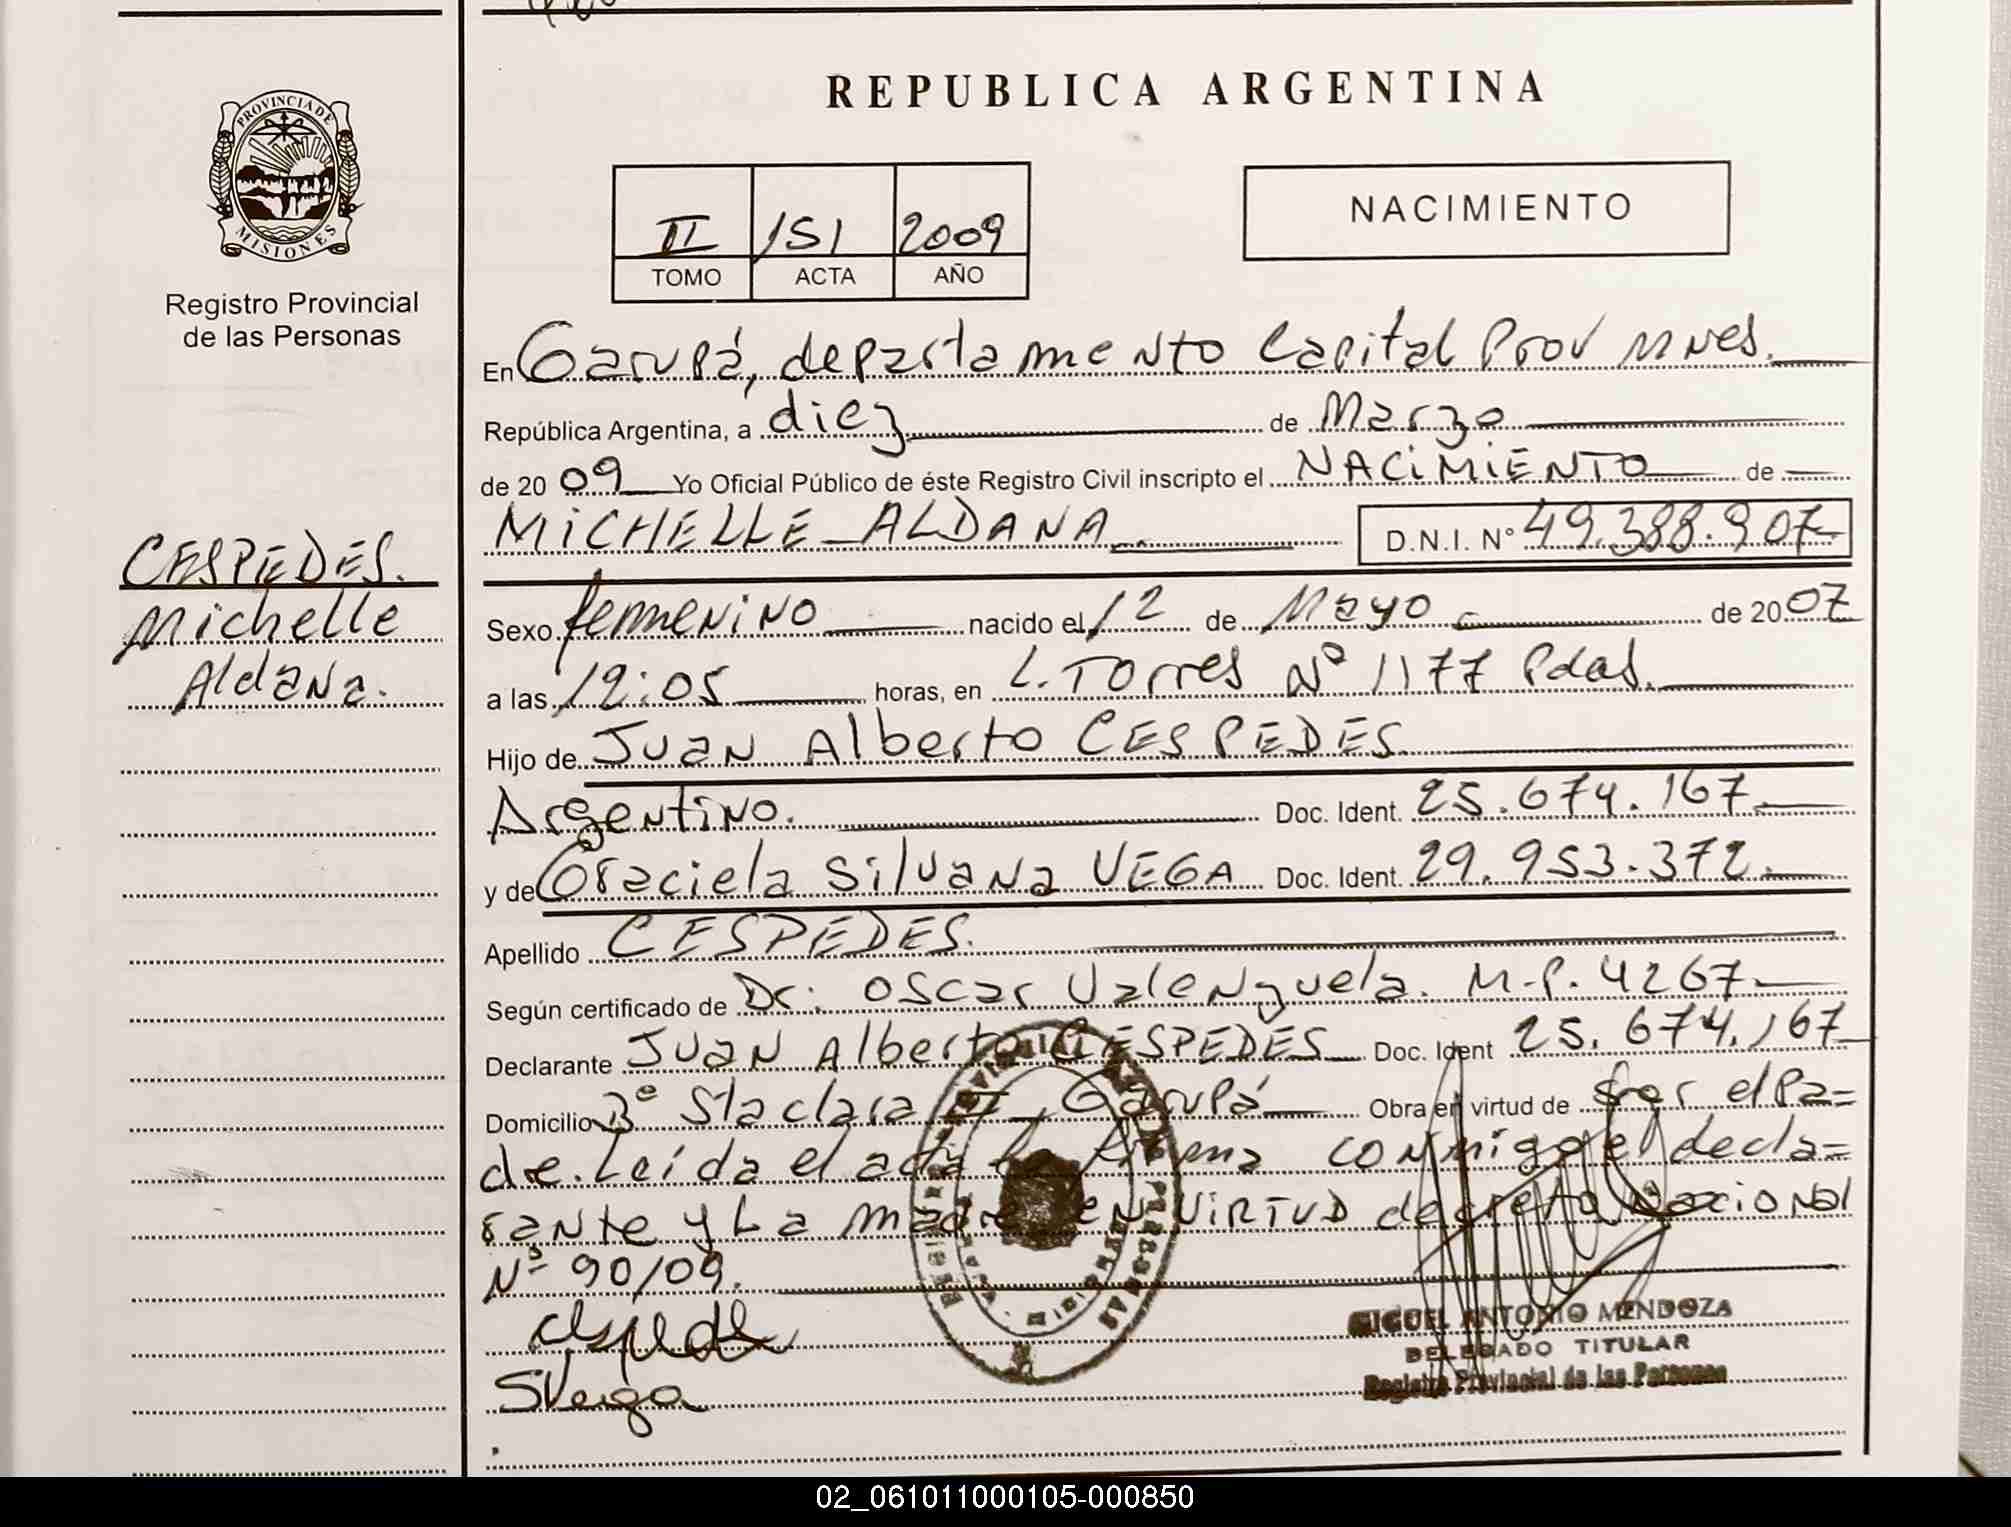 REPUBLICA ARGENTINA
PROVINCIA DE
MISIONES
Registro Provincial
de las Personas
NACIMIENTO
II 151 2009
TOMO ACTA AÑO
En Garupá, departamento Capital Prov Mnes.
República Argentina, a diez de Marzo
de 2009 Yo Oficial Público de éste Registro Civil inscripto el NACIMIENTO de
MICHELLE ALDANA D.N.I. N° 49.388.907
CESPEDES.
Michelle
Aldana.
Sexo femenino nacido el 12 de Mayo de 2007
a las 12:05 horas, en L. Torres N° 1177 Pdas.
Hijo de Juan Alberto CESPEDES
Argentino. Doc. Ident. 25.674.167
y de Graciela Silvana VEGA Doc. Ident. 29.953.372.
Apellido CESPEDES.
Según certificado de Dr. Oscar Valenzuela. M.P. 4267
Declarante Juan Alberto CESPEDES Doc. Ident 25.674.167
Domicilio B° Sta clara Garupá Obra en virtud de ser el Pa=
dre. Leída el acta la firma conmigo el decla=
rante y La madre en VIRTUD decreto Nacional
N° 90/09.
Cespede
SVega
MIGUEL ANTONIO MENDOZA
DELEGADO TITULAR
Registro Provincial de las Personas
02_061011000105-000850